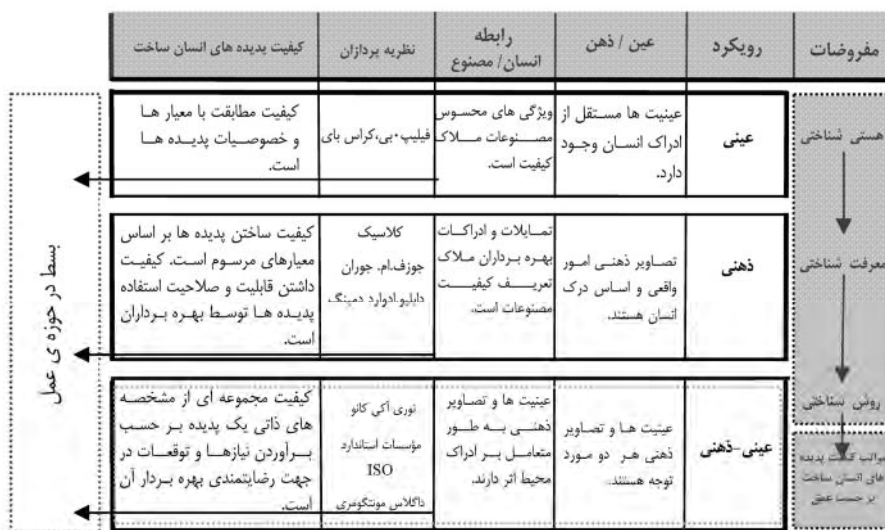 مفروضات
رویکرد
عین / ذهن
رابطه
انسان/ مصنوع
نظریه پردازان
کیفیت پدیده های انسان ساخت
هستی شناختی
معرفت شناختی
روش شناختی
مراتب کیفیت پدیده
های انسان ساخت
بر حسب عمق
عینی
عینیت ها مستقل از
ادراک انسان وجود
دارد.
ویژگی های محسوس
مصـنوعات مـلاک
کیفیت است.
فیلیپ.بی،کراس بای
کیفیت مطابقت با معیار ها
و خصوصیـات پدیـده هـا
است.
ذهنی
تصـاویر ذهنـی امـور
واقعی و اساس درک
انسان هستند.
تمـایلات و ادراکـات
بهره بـرداران مـلاک
تعریـف کیفیـت
مصنوعات است.
کلاسیک
جوزف.ام. جوران
دابلیو.ادوارد دمینگ
کیفیت ساختن پدیده ها بر اساس
معیارهای مرسوم است. کیفیـت
داشتن قابلیت و صلاحیت استفاده
پدیـده هـا توسـط بهـره بـرداران
است.
عینی-ذهنی
عینیت هـا و تصـاویر
ذهنی هـر دو مـورد
توجه هستند.
عینیت ها و تصاویر
ذهنـی بـه طـور
متعامل بـر ادراک
محیط اثر دارند.
نوری آکی کانو
مؤسسات استاندارد
ISO
داگلاس مونتگومری
کیفیت مجموعه ای از مشخصه
های ذاتی یک پدیده بـر حسب
بـرآوردن نیازهـا و توقعـات در
جهت رضایتمندی بهره بـردار آن
است.
بسط در حوزه ی عمل